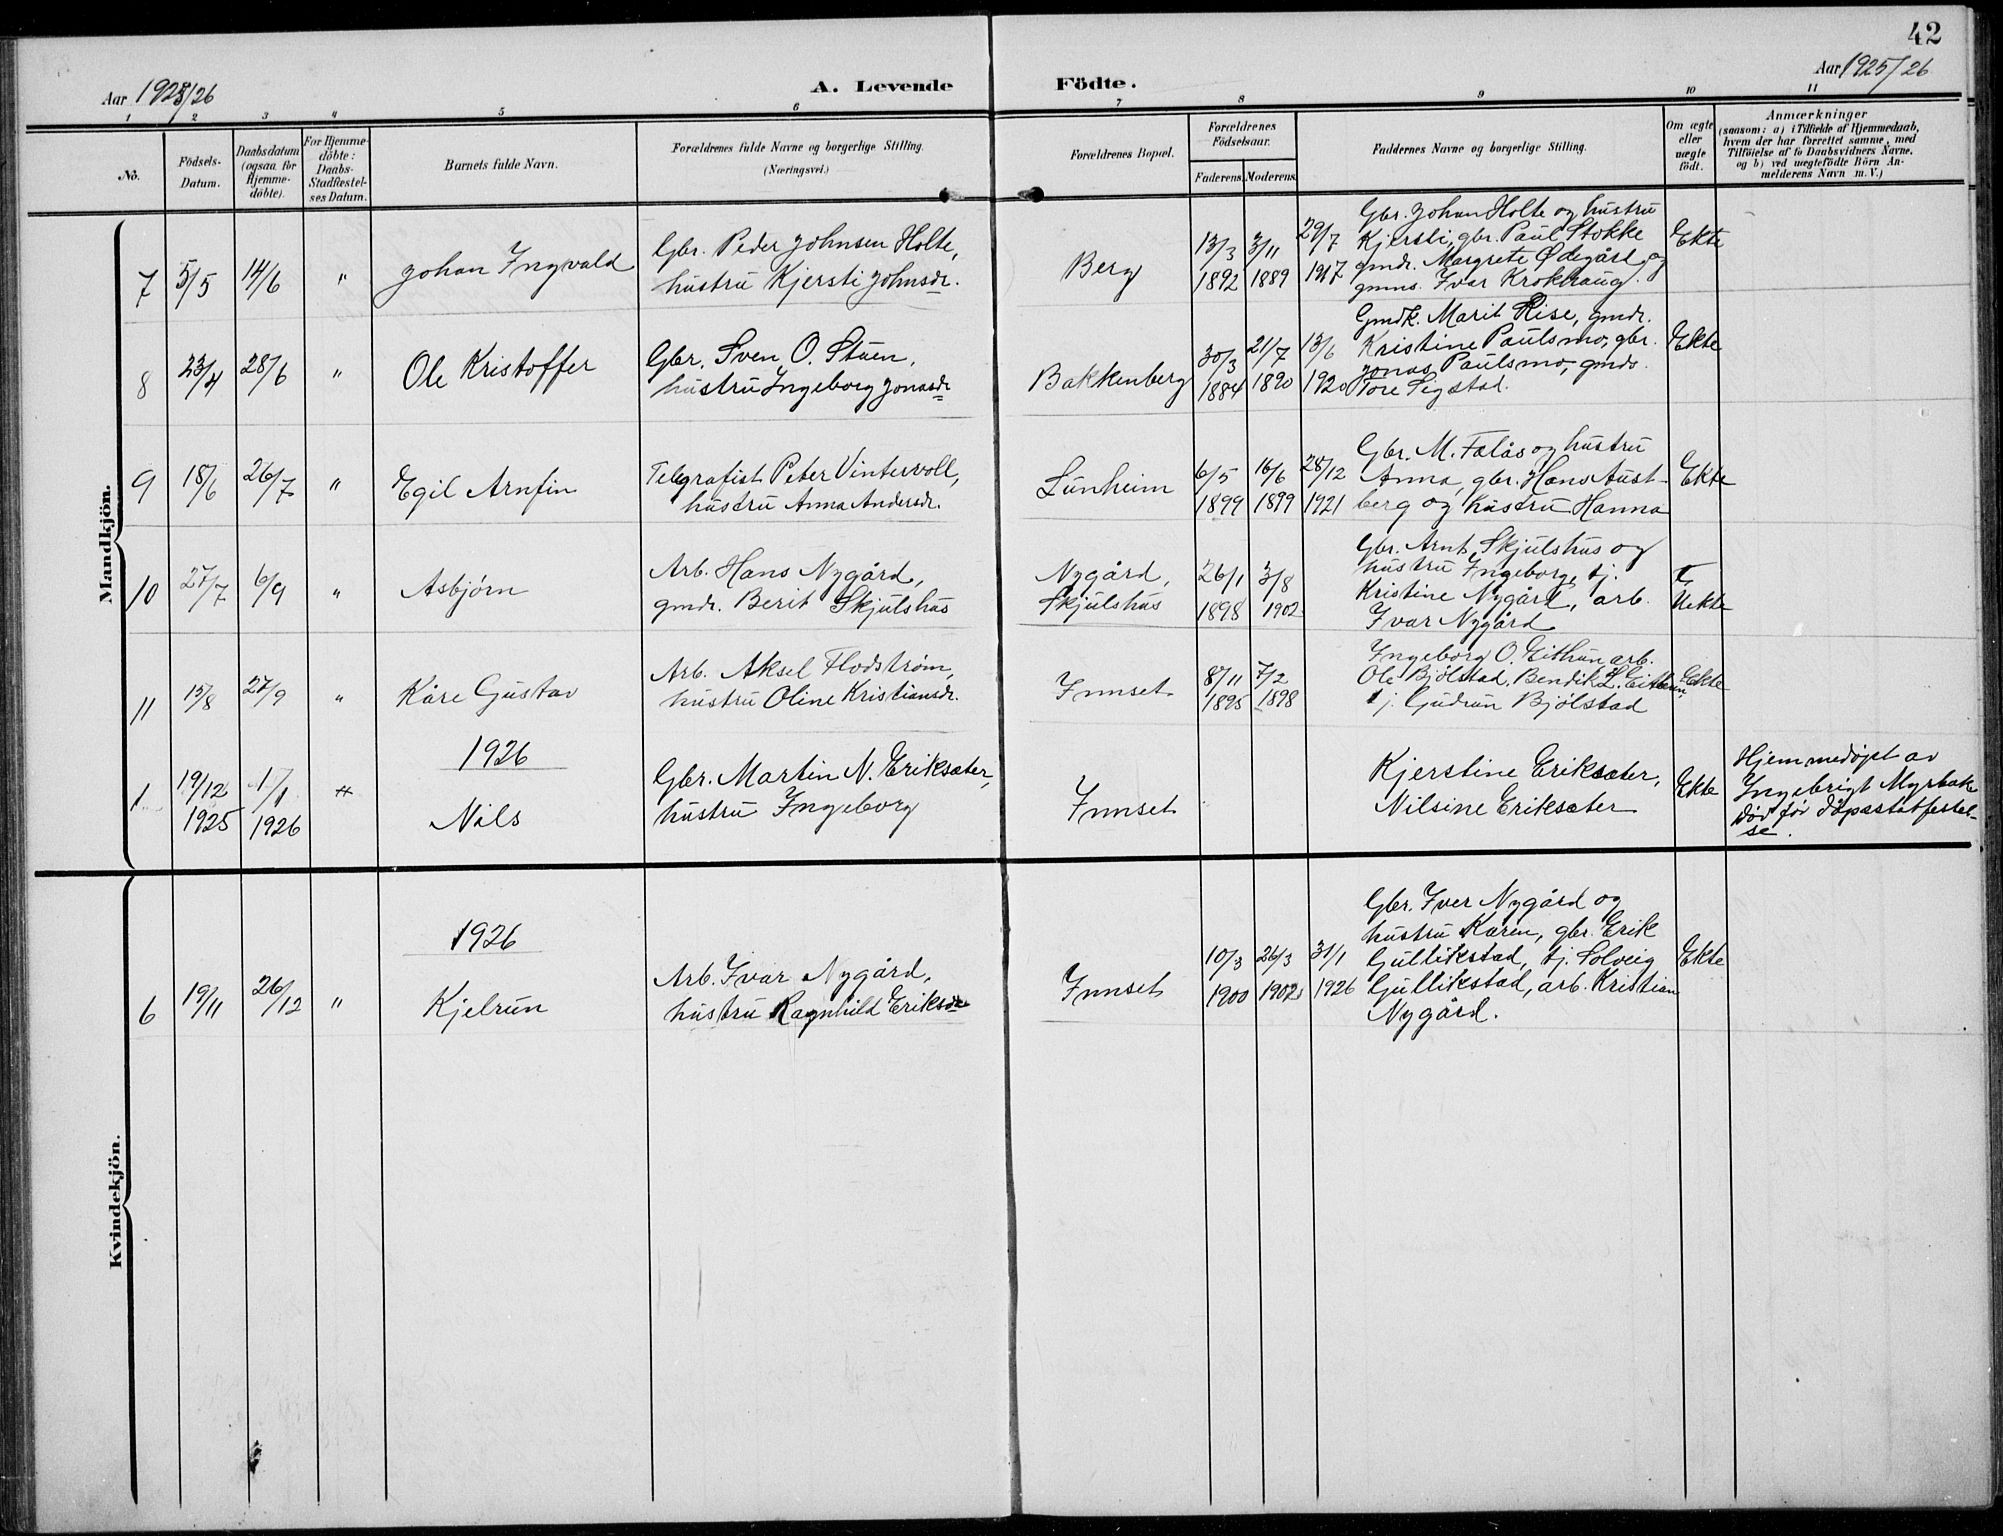 42
Aar 1925/26
A. Levende Födte.
Aar 1925/26
1 2 3 4 5 6 7 8 9 10 11
No.
Födsels-
Datum.
Daabsdatum
(ogsaa for
Hjemme-
döbte).
For Hjemme-
döbte:
Daabs-
Stadfæstel-
ses Datum.
Barnets fulde Navn.
Forældrenes fulde Navne og borgerlige Stilling.
(Næringsvei.)
Forældrenes Bopæl.
Forældrenes
Födselsaar.
Faderens. Moderens.
Faddernes Navne og borgerlige Stilling.
Om ægte
eller
uægte
födt.
Anmærkninger
(saasom: a) i Tilfælde af Hjemmedaab,
hvem der har forrettet samme, med
Tilföielse af to Daabsvidners Navne.
og b) ved uægtefödte Börn An-
melderens Navn m. V.)
Mandkjön.
7
5/5
14/6
"
Johan Ingvald
Gbr. Peder Johnsen Holte,
hustru Kjersti Johnsdr.
Berg
13/3
1892
3/11
1889
29/7
1917
Gbr. Johan Holte og hustru
Kjersti, gbr. Paul Stokke
gmdr. Margrete Ødegård og
gmns. Ivar Krokhaug.
Ekte
8
23/4
28/6
"
Ole Kristoffer
Gbr. Sven O. Stuen,
hustru Ingeborg Jonasdr.
Bakkenberg
30/3
1884
21/7
1890
13/6
1920
Gmdk. Marit Rise, gmdr.
Kristine Paulsmo, gbr.
Jonas Paulsmo, gmds.
Tore Segstad.
Ekte
9
18/6
26/7
"
Egil Arnfin
Telegrafist Peter Vintervoll,
hustru Anna Andersdr.
Lunheim
6/5
1899
16/6
1899
28/12
1921
Gbr. M. Falås og hustru
Anna, gbr. Hans Aust-
berg og hustru Hanna
Ekte
10
27/7
6/9
"
Asbjørn
Arb. Hans Nygård,
gmdr. Berit Skjulshus
Nygård,
Skjulshus
26/1
1898
3/8
1902
Gbr. Arnt Skjulshus og
hustru Ingeborg, tj.
Kristine Nygård, arb.
Ivar Nygård
Uekte
11
15/8
27/9
"
Kåre Gustav
Arb. Aksel Flodstrøm,
hustru Oline Kristiansdr.
Innset
8/11
1895
7/2
1898
Ingeborg O. Eithun arb.
Ole Bjølstad, Bendik L. Eithun,
tj. Gudrun Bjølstad
Ekte
1926
1
19/12
1925
1/1
1926
Nils
Gbr. Martin N. Eriksæter,
hustru Ingeborg
Innset
Kjerstine Eriksæter,
Nilsine Eriksæter
Ekte
Hjemmedøpt av
Ingebrigt Myrbakk
Død før dåpsstatfestel-
se.
Kvindekjön.
1926
6
19/11
26/12
"
Kjelrun
Arb. Ivar Nygård,
hustru Ragnhild Eriksdr
Innset
10/3
1900
26/3
1902
31/1
1926
Gbr. Iver Nygård og
hustru Karen, gbr. Erik
Gullikstad, tj. Solveig
Gullikstad, arb. Kristian
Nygård.
Ekte